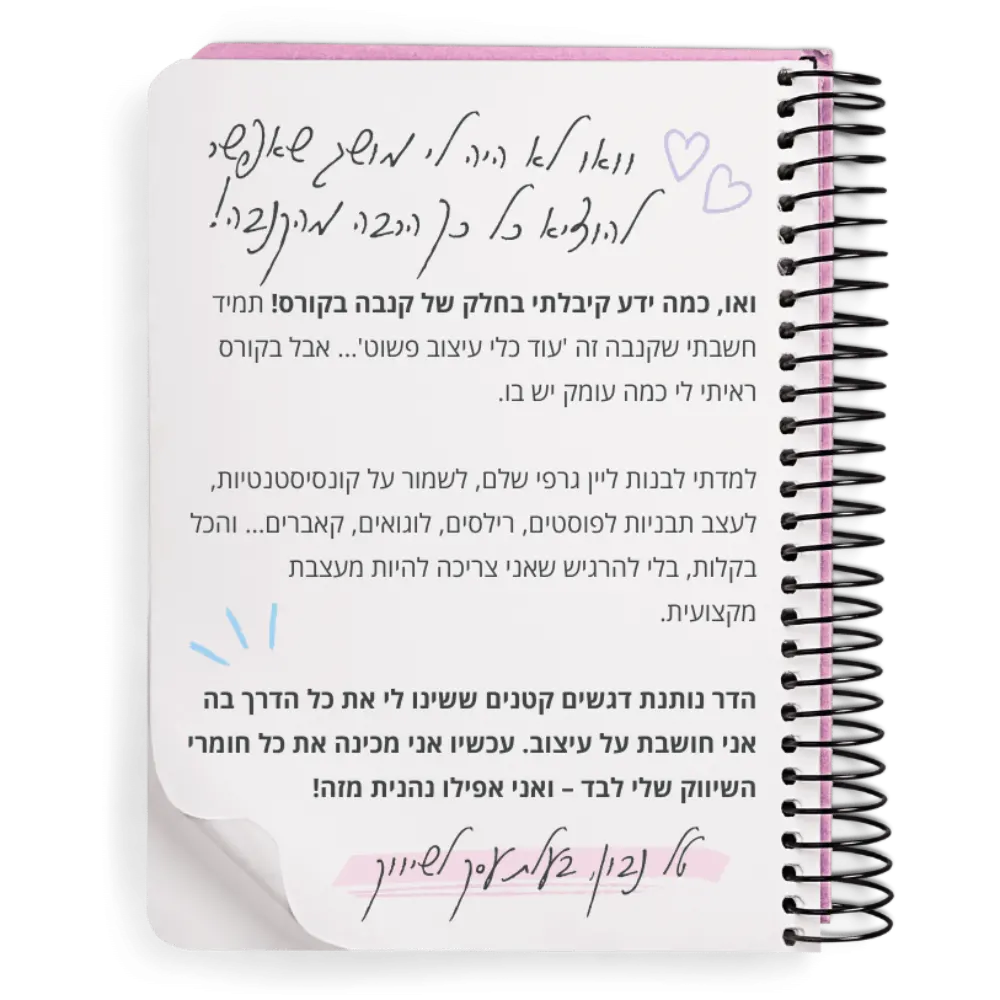 וואו לא היה לי מושג שאפשר
להוציא כל כך הרבה מהקנבה!
ואו, כמה ידע קיבלתי בחלק של קנבה בקורס! תמיד
חשבתי שקנבה זה 'עוד כלי עיצוב פשוט'... אבל בקורס
ראיתי לי כמה עומק יש בו.
למדתי לבנות ליין גרפי שלם, לשמור על קונסיסטנטיות,
לעצב תבניות לפוסטים, רילסים, לוגואים, קאברים... והכל
בקלות, בלי להרגיש שאני צריכה להיות מעצבת
מקצועית.
הדר נותנת דגשים קטנים ששינו לי את כל הדרך בה
אני חושבת על עיצוב. עכשיו אני מכינה את כל חומרי
השיווק שלי לבד – ואני אפילו נהנית מזה!
טל נבון, בעלת עסק לשיווק